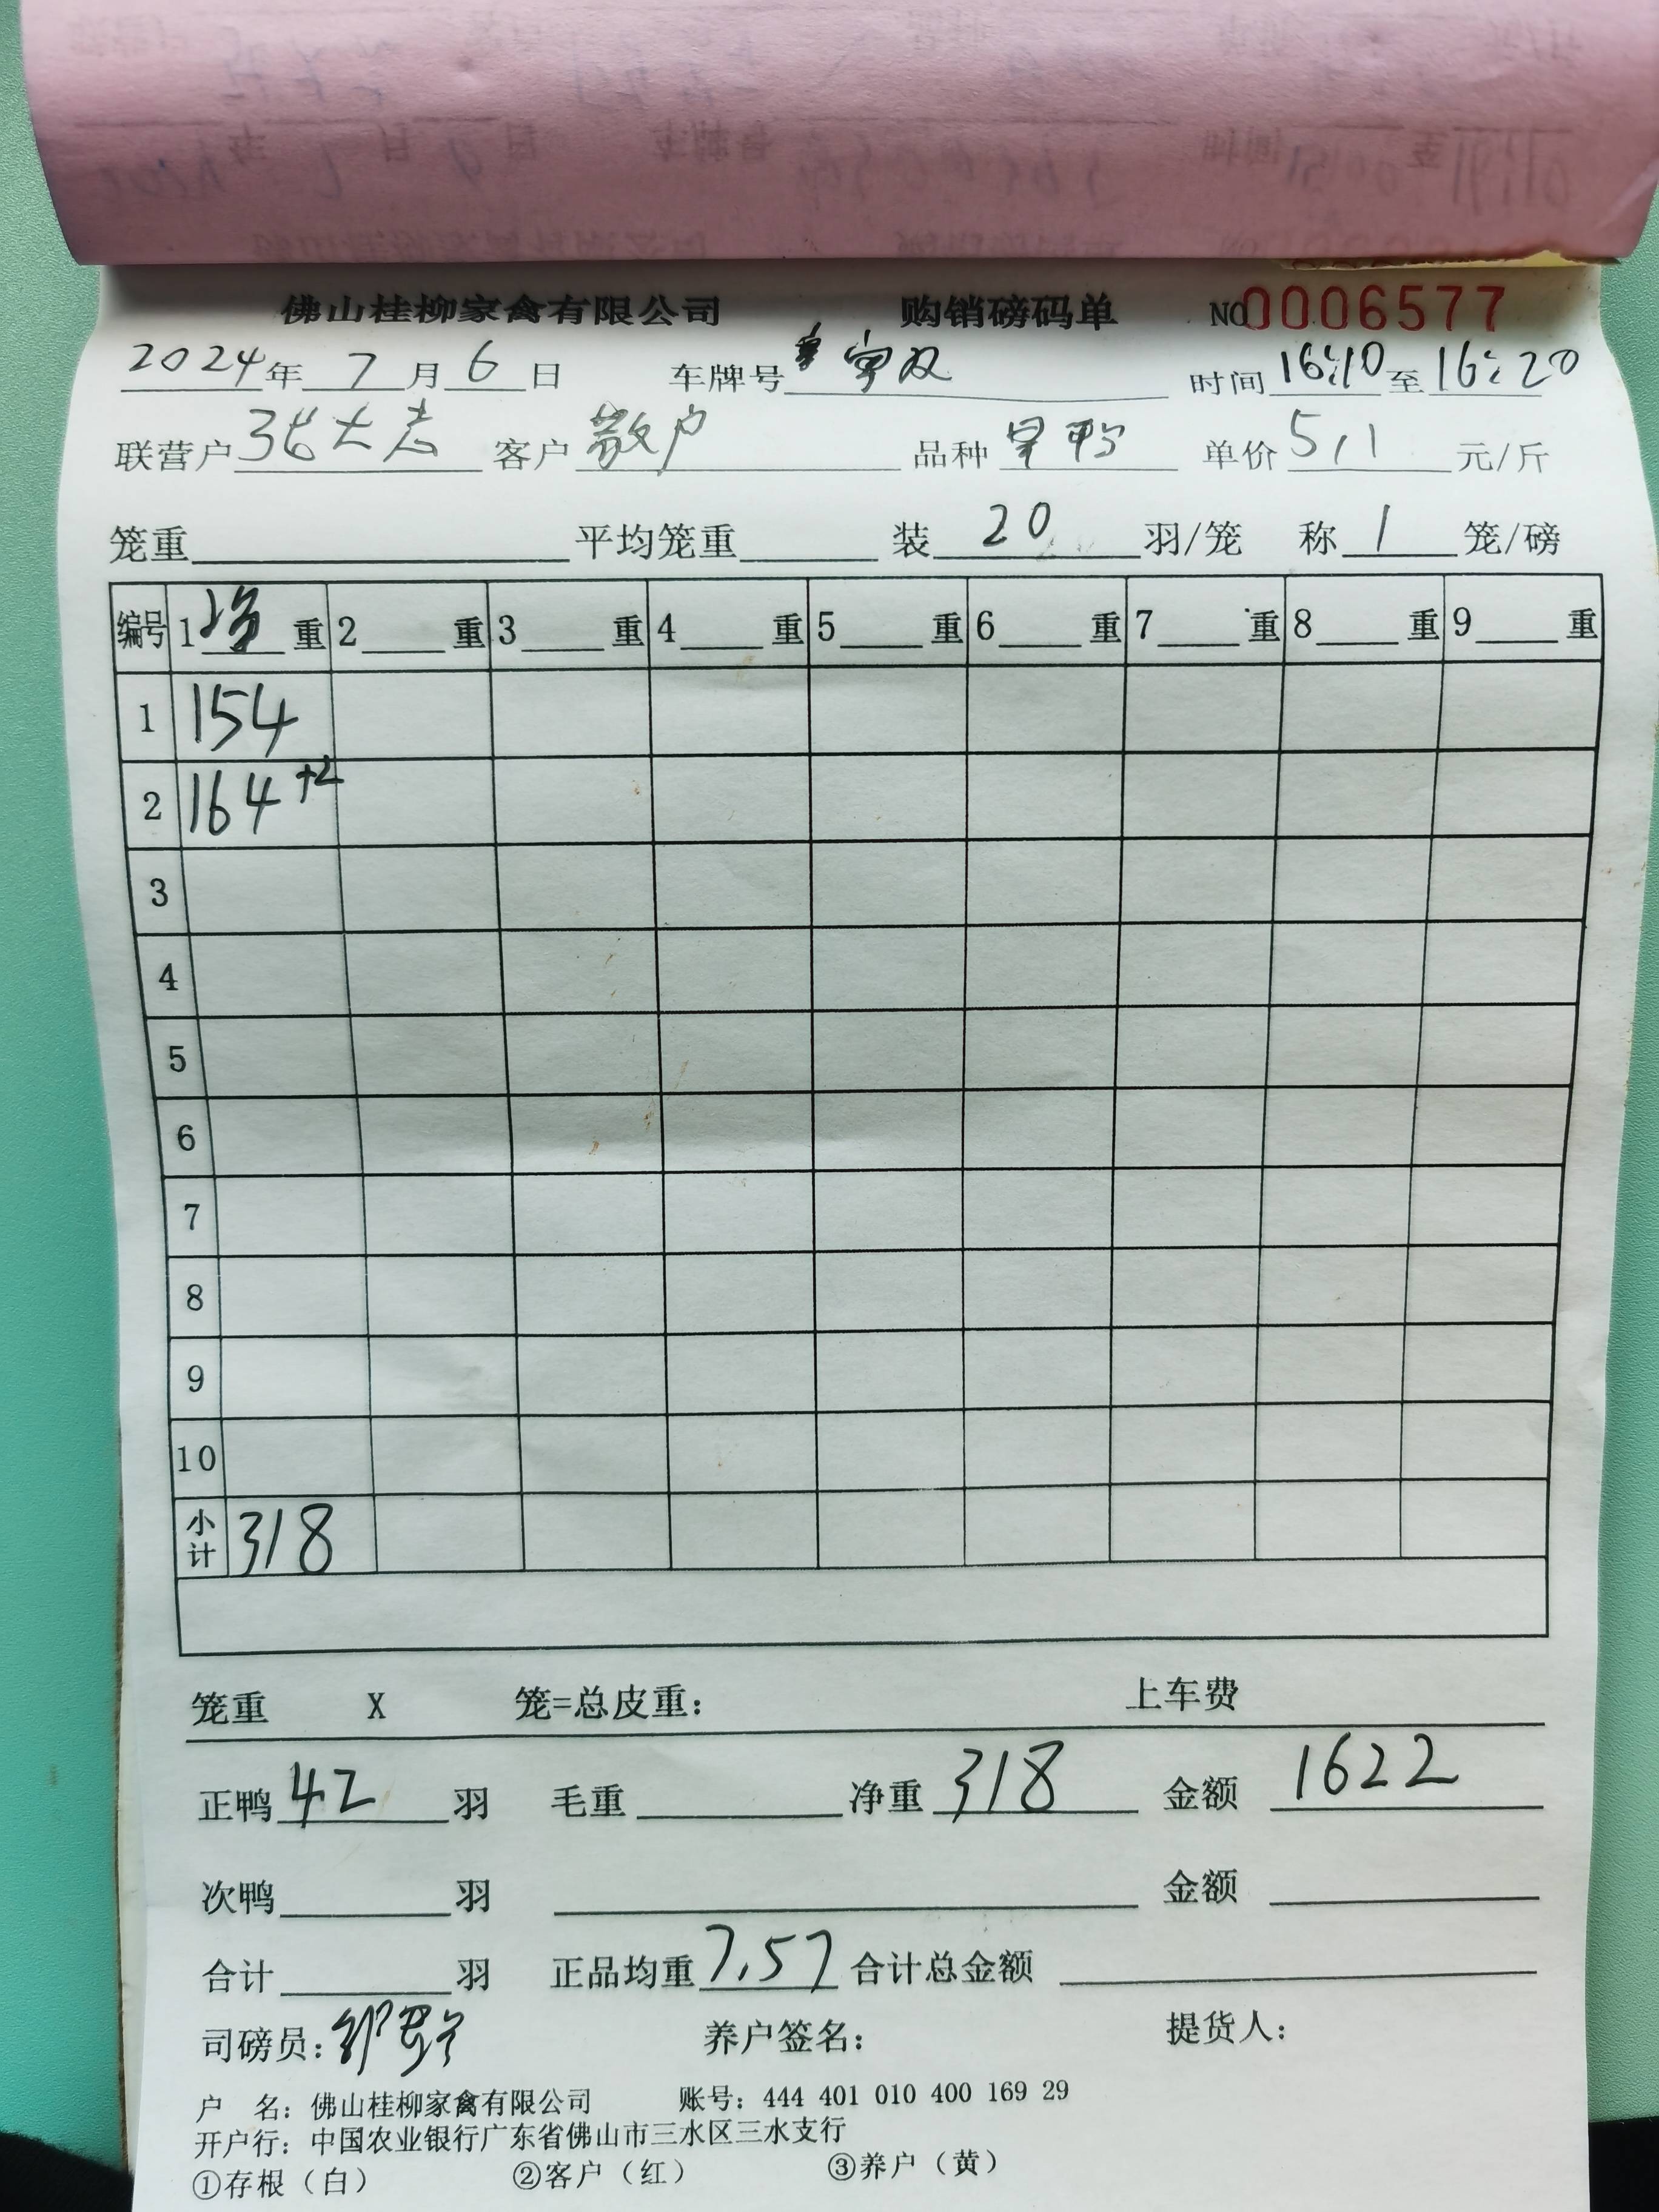 佛山桂柳家禽有限公司 购销磅码单 NO 0006577
2024年 7 月 6 日 车牌号 时间 16:10 至 16:20
联营户 张大志 客户 散户 品种 单价 5.1 元/斤
笼重 平均笼重 装 20 羽/笼 称 1 笼/磅
编号 1 净 重 2 重 3 重 4 重 5 重 6 重 7 重 8 重 9 重
1 154
2 164 +2
3
4
5
6
7
8
9
10
小计 318
笼重 X 笼=总皮重: 上车费
正鸭 42 羽 毛重 净重 318 金额 1622
次鸭 羽 金额
合计 羽 正品均重 7.57 合计总金额
司磅员: 养户签名: 提货人:
户 名: 佛山桂柳家禽有限公司 账号: 444 401 010 400 169 29
开户行: 中国农业银行广东省佛山市三水区三水支行
①存根(白) ②客户(红) ③养户(黄)